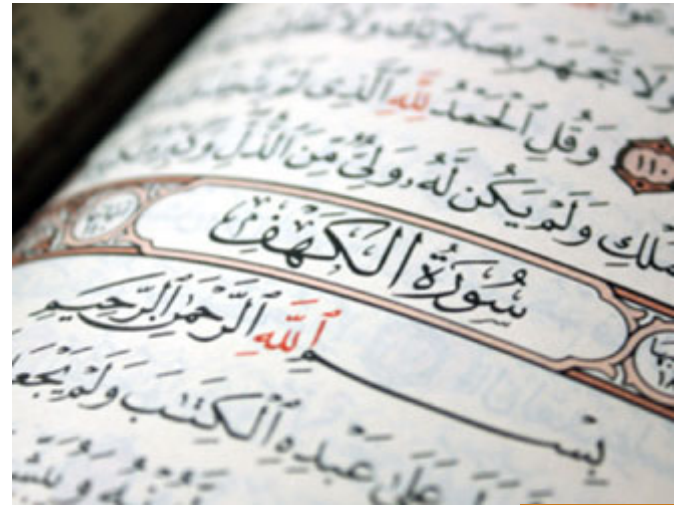 وَلَا تَجْهَرْ بِصَلَاتِكَ وَلَا
١١٠ وَقُلِ ٱلْحَمْدُ لِلَّهِ ٱلَّذِى لَمْ
ٱلْمُلْكِ وَلَمْ يَكُن لَّهُۥ وَلِىٌّ مِّنَ ٱلذُّلِّ
سُورَةُ الكَهْفِ
بِسْمِ ٱللَّهِ ٱلرَّحْمَٰنِ ٱلرَّحِيمِ
عَلَىٰ عَبْدِهِ ٱلْكِتَٰبَ وَلَمْ يَجْعَل